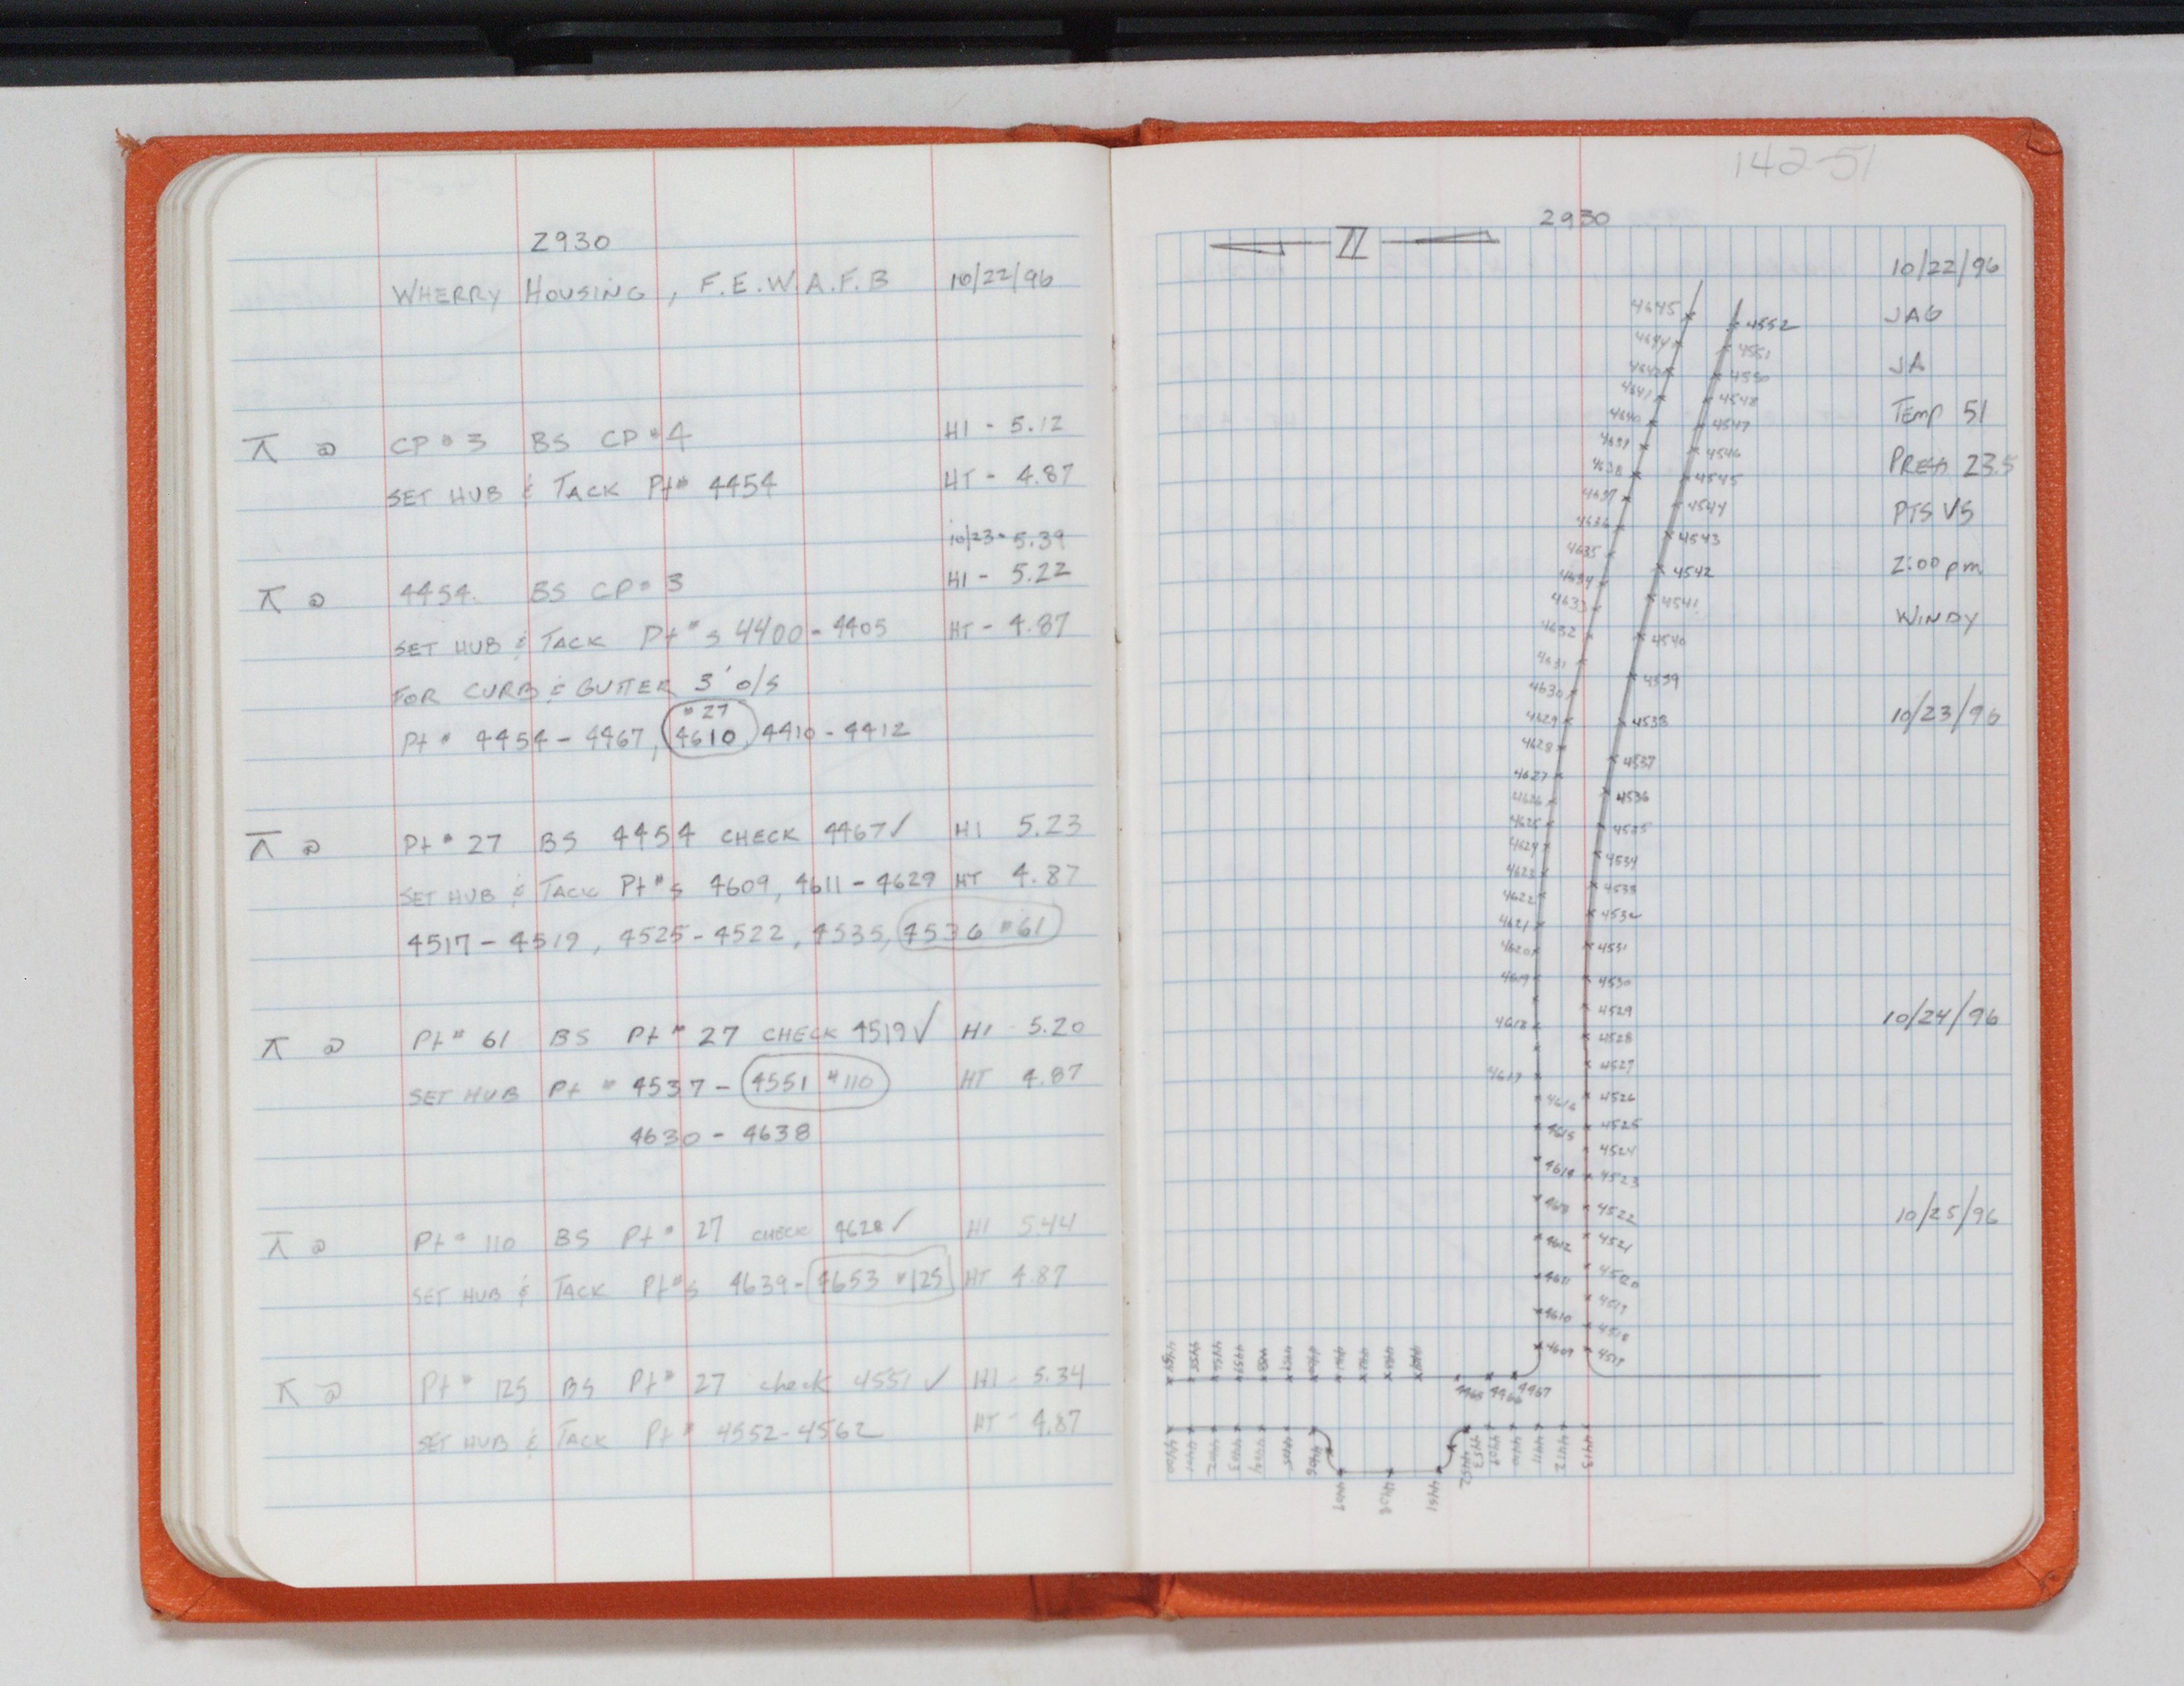 2930
WHERRY HOUSING, F.E.W.A.F.B 10/22/96
⊼ @ CP#3 BS CP#4 HI - 5.12
SET HUB & TACK Pt# 4454 HT - 4.87
10/23 - 5.39
⊼ @ 4454 BS CP#3 HI - 5.22
SET HUB & TACK Pt#s 4400 - 4405 HT - 4.87
FOR CURB & GUTTER 3' o/s
#27
Pt# 4454 - 4467, 4610, 4410 - 4412
⊼ @ Pt# 27 BS 4454 CHECK 4467 ✓ HI 5.23
SET HUB & TACK Pt#s 4609, 4611 - 4629 HT 4.87
4517 - 4519, 4525 - 4522, 4535, 4536 #61
⊼ @ Pt# 61 BS Pt# 27 CHECK 4519 ✓ HI - 5.20
SET HUB Pt# 4537 - 4551 #110 HT 4.87
4630 - 4638
⊼ @ Pt# 110 BS Pt# 27 CHECK 4628 ✓ HI 5.44
SET HUB & TACK Pt#s 4639 - 4653 #125 HT 4.87
⊼ @ Pt# 125 BS Pt# 27 check 4551 ✓ HI - 5.34
SET HUB & TACK Pt# 4552 - 4562 HT - 4.87
142-51
2930
10/22/96
JAG
JA
TEMP 51
PRESS 23.5
PTS V5
2:00 pm
WINDY
10/23/96
10/24/96
10/25/96
4645 4552
4644 4551
4642 4550
4641 4548
4640 4547
4639 4546
4638 4545
4637 4544
4636 4543
4635 4542
4634 4541
4633 4540
4632 4539
4631 4538
4630 4537
4629 4536
4628 4535
4627 4534
4626 4533
4625 4532
4624 4531
4623 4530
4622 4529
4621 4528
4620 4527
4619 4526
4618 4525
4617 4524
4616 4523
4615 4522
4614 4521
4613 4520
4612 4519
4611 4518
4610 4517
4609
4465 4466 4467
4400 4401 4402 4403 4404 4405 4406 4407 4408 4451 4452 4453 4409 4410 4411 4412 4413